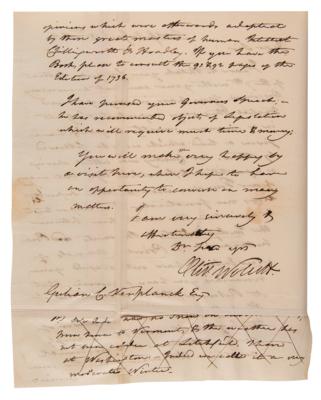 opinions which were afterwards adopted
by those great masters of human Intellect
Chillingworth & Hoadley. If you have the
Book, please to consult the 91 & 92 pages of the
Edition of 1736.
I have perused your Governors Speech,
he has recommended objects of Legislation
which will require much time & money;
You will make me very happy by
a visit here, when I hope to have
an opportunity to converse on many
matters.
I am very sincerely &
Dr Sir yrs
Oliv Wolcott.
Gulian C. Verplanck Esq
no Snow on
from here to Vermont, & the weather has
not been colder at Litchfield, than
at Washington. Indeed we call it a very
moderate Winter.